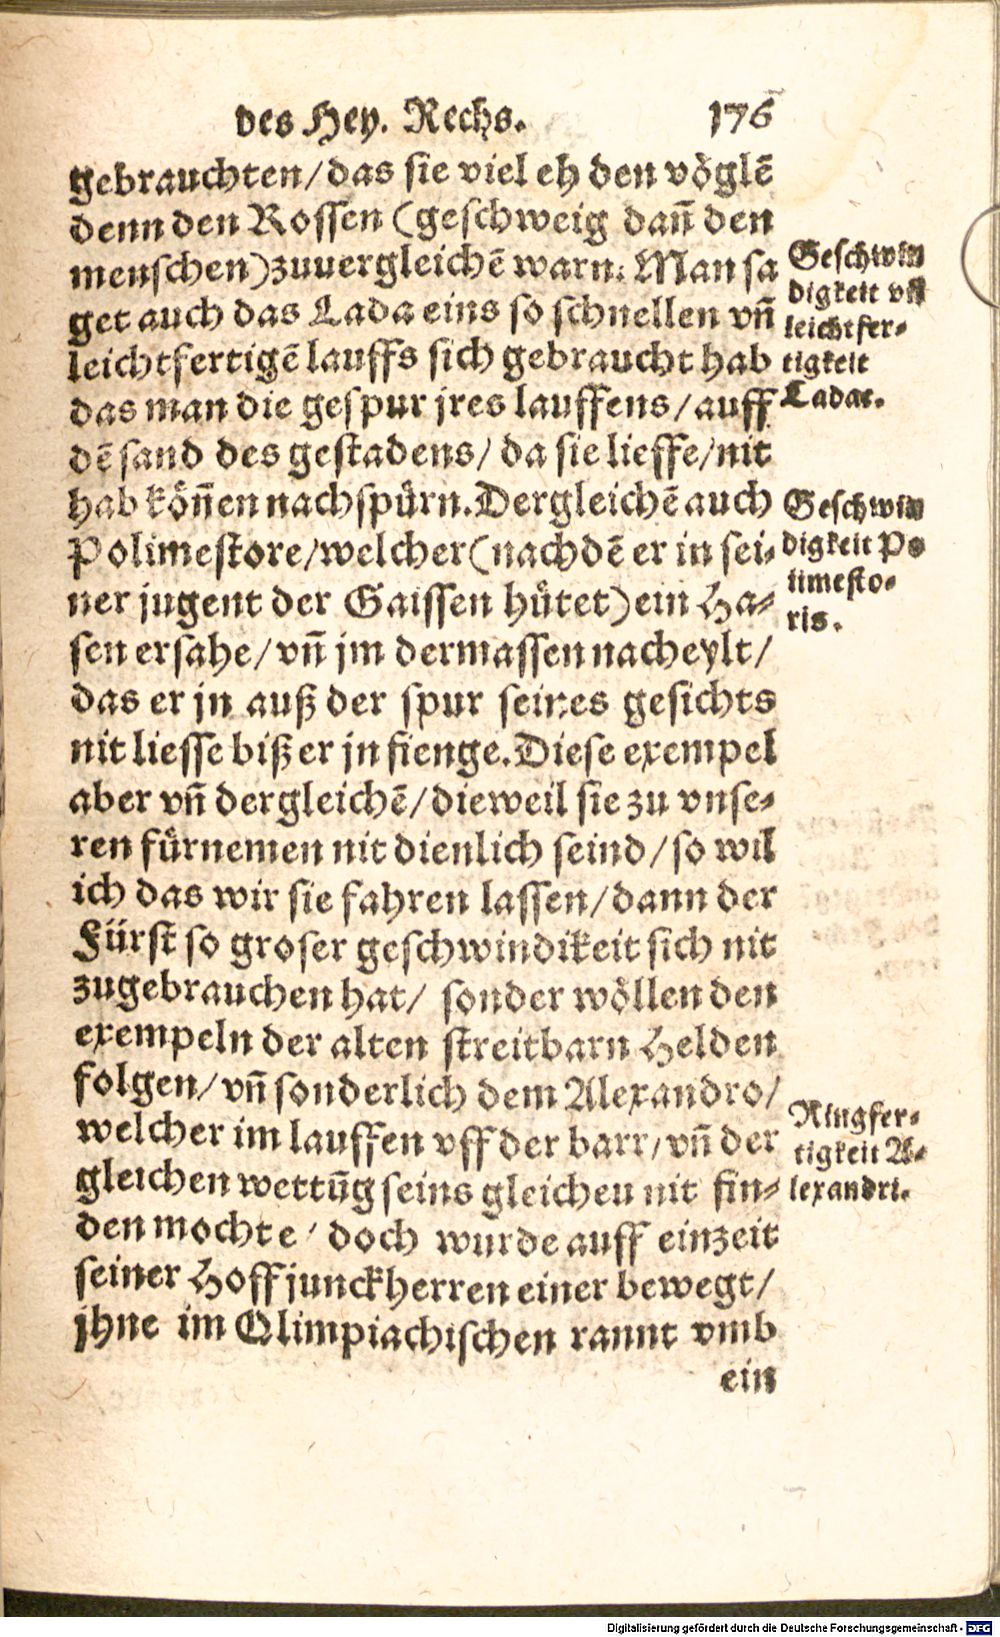 des Hey. Rechs. 176
gebrauchten/das sie viel eh den vőglē
denn den Rossen (geschweig dañ den
menschen)zuuergleichē warn: Man sa
get auch das Lada eins so schnellen vñ
leichtfertigē lauffs sich gebraucht hab
das man die gespur jres lauffens/auff
dē sand des gestadens/da sie lieffe/nit
hab köñen nachspürn.Dergleichē auch
Polimestore/welcher(nachdē er in sei-
ner jugent der Gaissen hütet)ein Ha-
sen ersahe/vñ jm dermassen nacheylt/
das er jn auß der spur seines gesichts
nit liesse biß er jn fienge.Diese exempel
aber vñ dergleichē/dieweil sie zu vnse-
ren fürnemen nit dienlich seind/so wil
ich das wir sie fahren lassen/dann der
Fürst so groser geschwindikeit sich nit
zugebrauchen hat/ sonder wöllen den
exempeln der alten streitbarn Helden
folgen/vñ sonderlich dem Alexandro/
welcher im lauffen vff der barr/vñ der
gleichen wettũg seins gleicheu nit fin-
den mochte/ doch wurde auff einzeit
seiner Hoffjunckherren einer bewegt/
jhne im Olimpiachischen rannt vmb
ein
Geschwin
digkeit vñ
leichtfer-
tigkeit
Ladae.
Geschwin
digkeit Po
limesto-
ris.
Ringfer-
tigkeit A-
lexandri.
Digitalisierung gefördert durch die Deutsche Forschungsgemeinschaft - DFG